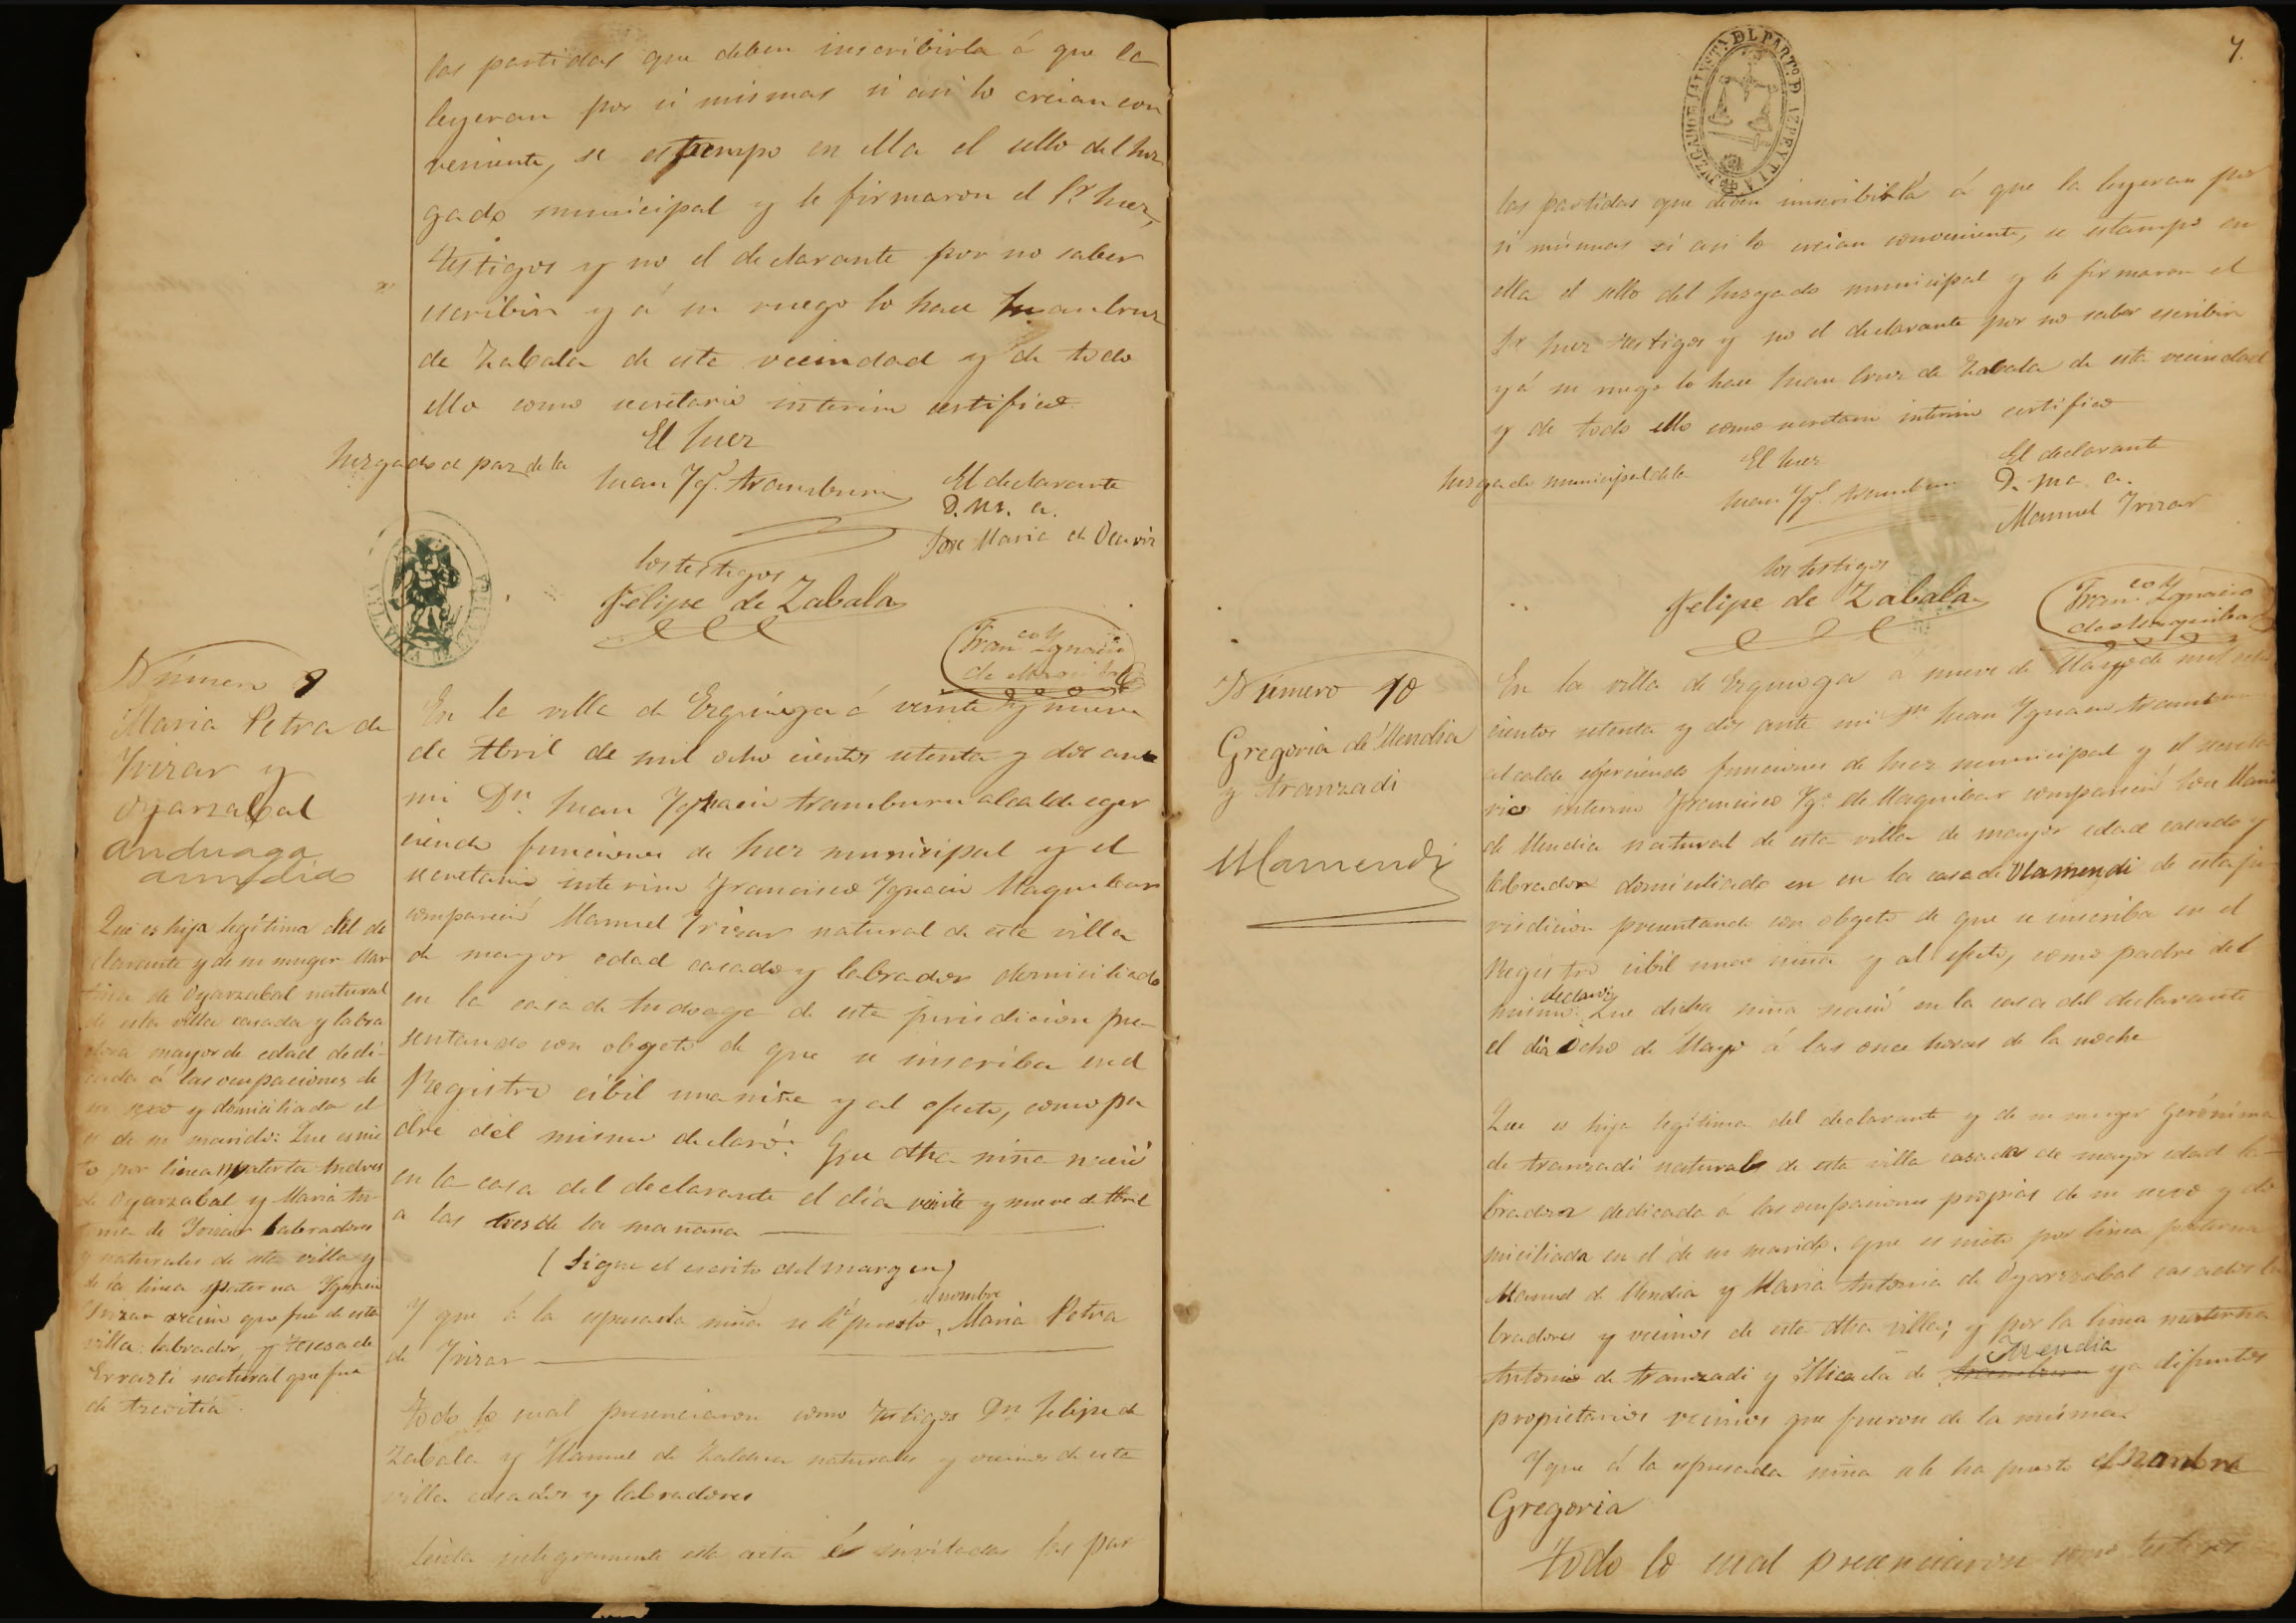 las partidas que deben inscribirla á que la
leyeran por si mismas si asi lo creian con
veniente, se estampo en ella el sello del Juz
gado municipal y le firmaron el Sr. Juez,
testigos y no el declarante por no saber
escribir y á su ruego lo hace Juan Cruz
de Zabala de esta vecindad y de todo
ello como secretario interino certifico
El Juez
Juzgado de paz de la
Juan Ygo. Aramburu
El declarante
D. M. a.
Jose Maria de
Los testigos
Felipe de Zabala
Franco. Ygnacio
de
Número 9
Maria Petra de
Yrizar y
Oyarzabal
anduaga
Que es hija legítima del de
clarante y de su muger Mar
tina de Oyarzabal natural
de esta villa casada y labra
dora mayor de edad dedi-
cada á las ocupaciones de
su sexo y domiciliada el
de su marido: Que es nie
ta por linea materna Andres
de Oyarzabal y Maria An-
tonia de Yrizar labradores
y naturales de esta villa y
de la linea paterna Ygnacio
Yrizar vecino que fué de esta
villa labrador, y Teresa de
Errazti natural que fue
de Azcoitia.
En la villa de Ezquioga á veinte y nueve
de Abril de mil ocho cientos setenta y dos ante
mi Dn. Juan Ygnacio Aramburu alcalde eger
ciendo funciones de Juez municipal y el
secretario interino Francisco Ygnacio Maguibar
compareció Manuel Yrizar natural de esta villa
de mayor edad casado y labrador domiciliado
en la casa de Anduaga de esta jurisdicion pre-
sentando con objeto de que se inscriba en el
Registro cibil una niña y al efecto, como pa
dre del mismo declaró: Que dha niña nació
en la casa del declarante el día veinte y nueve de Abril
a las tres de la mañana
(Sigue el escrito del margen)
el nombre
Y que á la espresada niña se le puesto, Maria Petra
de Yrizar
Todo lo cual presenciaron como testigos Dn Felipe de
Zabala y Manuel de Zaldua naturales y vecinos de esta
villa casados y labradores
Leida integramente esta acta é invitadas las par
7.
JUZGADO DE 1A YNSTA. DL PARTO. D AZPEYTIA
las partidas que deben inscribirla á que la leyeran por
si mismas si asi lo creian conveniente, se estampo en
ella el sello del Juzgado municipal y le firmaron el
Sr Juez testigos y no el declarante por no saber escribir
y á su ruego lo hace Juan Cruz de Zabala de esta vecindad
y de todo ello como secretario interino certifico
Juzgado municipal de la
El Juez
Juan Ygo. Aramburu
El declarante
D. M. a.
Manuel Yrizar
Los testigos
Felipe de Zabala
Franco. Ygnacio
de Maguibar
Número 10
Gregoria de Mendia
y Aranzadi
Olamendi
En la villa de Ezquioga a nueve de Mayo de mil ocho
cientos setenta y dos ante mi Dn Juan Ygnacio Aramburu
alcalde egerciendo funciones de Juez municipal y el secreta
rio interino Francisco Ygo. de Maguibar compareció Jose Maria
de Mendia natural de esta villa de mayor edad casado y
labrador domiciliado en en la casa de Olamendi de esta ju-
risdicion presentando con objeto de que se inscriba en el
Registro cibil una niña y al efecto, como padre del
declaró
mismo: Que dicha niña nació en la casa del declarante
el día ocho de Mayo á las once horas de la noche
Que es hija legítima del declarante y de su muger Gerónima
de Aranzadi natural de esta villa casada de mayor edad la-
bradora dedicada á las ocupaciones propias de su sexo y do
miciliada en el de su marido. Que es nieta por linea paterna
Manuel de Mendia y Maria Antonia de Oyarzabal casados la
bradores y vecinos de esta dha villa; y por la linea materna
Antonio de Aranzadi y Micaela de ya difuntos
propietarios vecinos que fueron de la misma.
Y que á la espresada niña se le ha puesto el nombre
Gregoria
Todo lo cual presenciaron como testigos